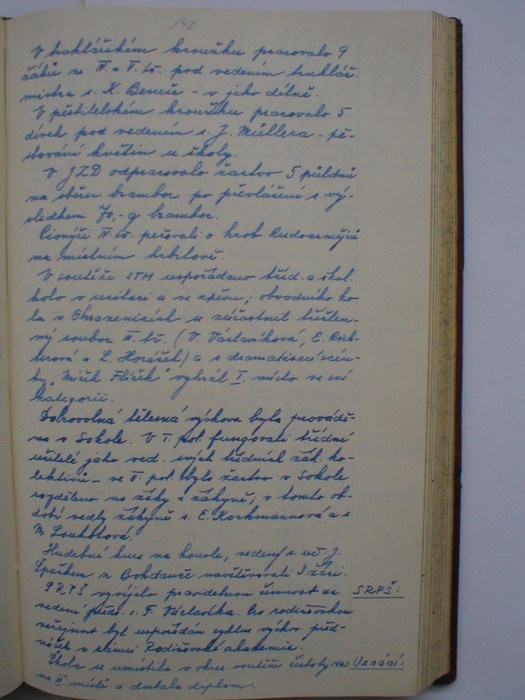 142
V truhlářském kroužku pracovalo 9
žáků ze IV. a V. tř. pod vedením truhlář.
mistra s. K. Beneše - v jeho dílně.
V pěstitelském kroužku pracovalo 5
dívek pod vedením s. J. Müllera - pě-
stování květin u školy.
V JZD odpracovalo žactvo 5 půldnů
na sběru brambor po převláčení s vý-
sledkem 70,- q brambor.
Pionýři IV. tř. pečovali o hrob Rudoarmějců
na místním hřbitově.
V soutěži STM uspořádáno tříd. a škol.
kolo v recitaci a ve zpěvu; obvodního ko-
la v Chrazenicích se zúčastnil tříčlen-
ný soubor III. tř. (V. Václavíková, E. Koch-
a Z. Horáček) a s dramatisací scén-
ky "Míček Flíček" vyhrál I. místo ve své
kategorii.
Dobrovolná tělesná výchova byla provádě-
na v Sokole. V I. pol. fungovali třídní
učitelé jako ved. svých třídních žák. ko-
lektivů - ve II. pol. bylo žactvo v Sokole
rozděleno na žáky a žákyně; v tomto ob-
dobí vedly žákyně s. E. Kochmannová a s.
M. Loukotová.
Hudební kurs na housle, vedený s. uč. J.
Špačkem z Bohdanče navštěvovali 3 žáci.
SRPŠ vyvíjelo pravidelnou činnost za SRPŠ:
vedení předs. s. F. Václavíka. Pro rodičovskou
veřejnost byl uspořádán cyklus výchov. před-
nášek v rámci Rodičovské akademie.
Škola se umístila v okres. soutěži čistoty 1963 Uznání:
na II. místě a dostala diplom.